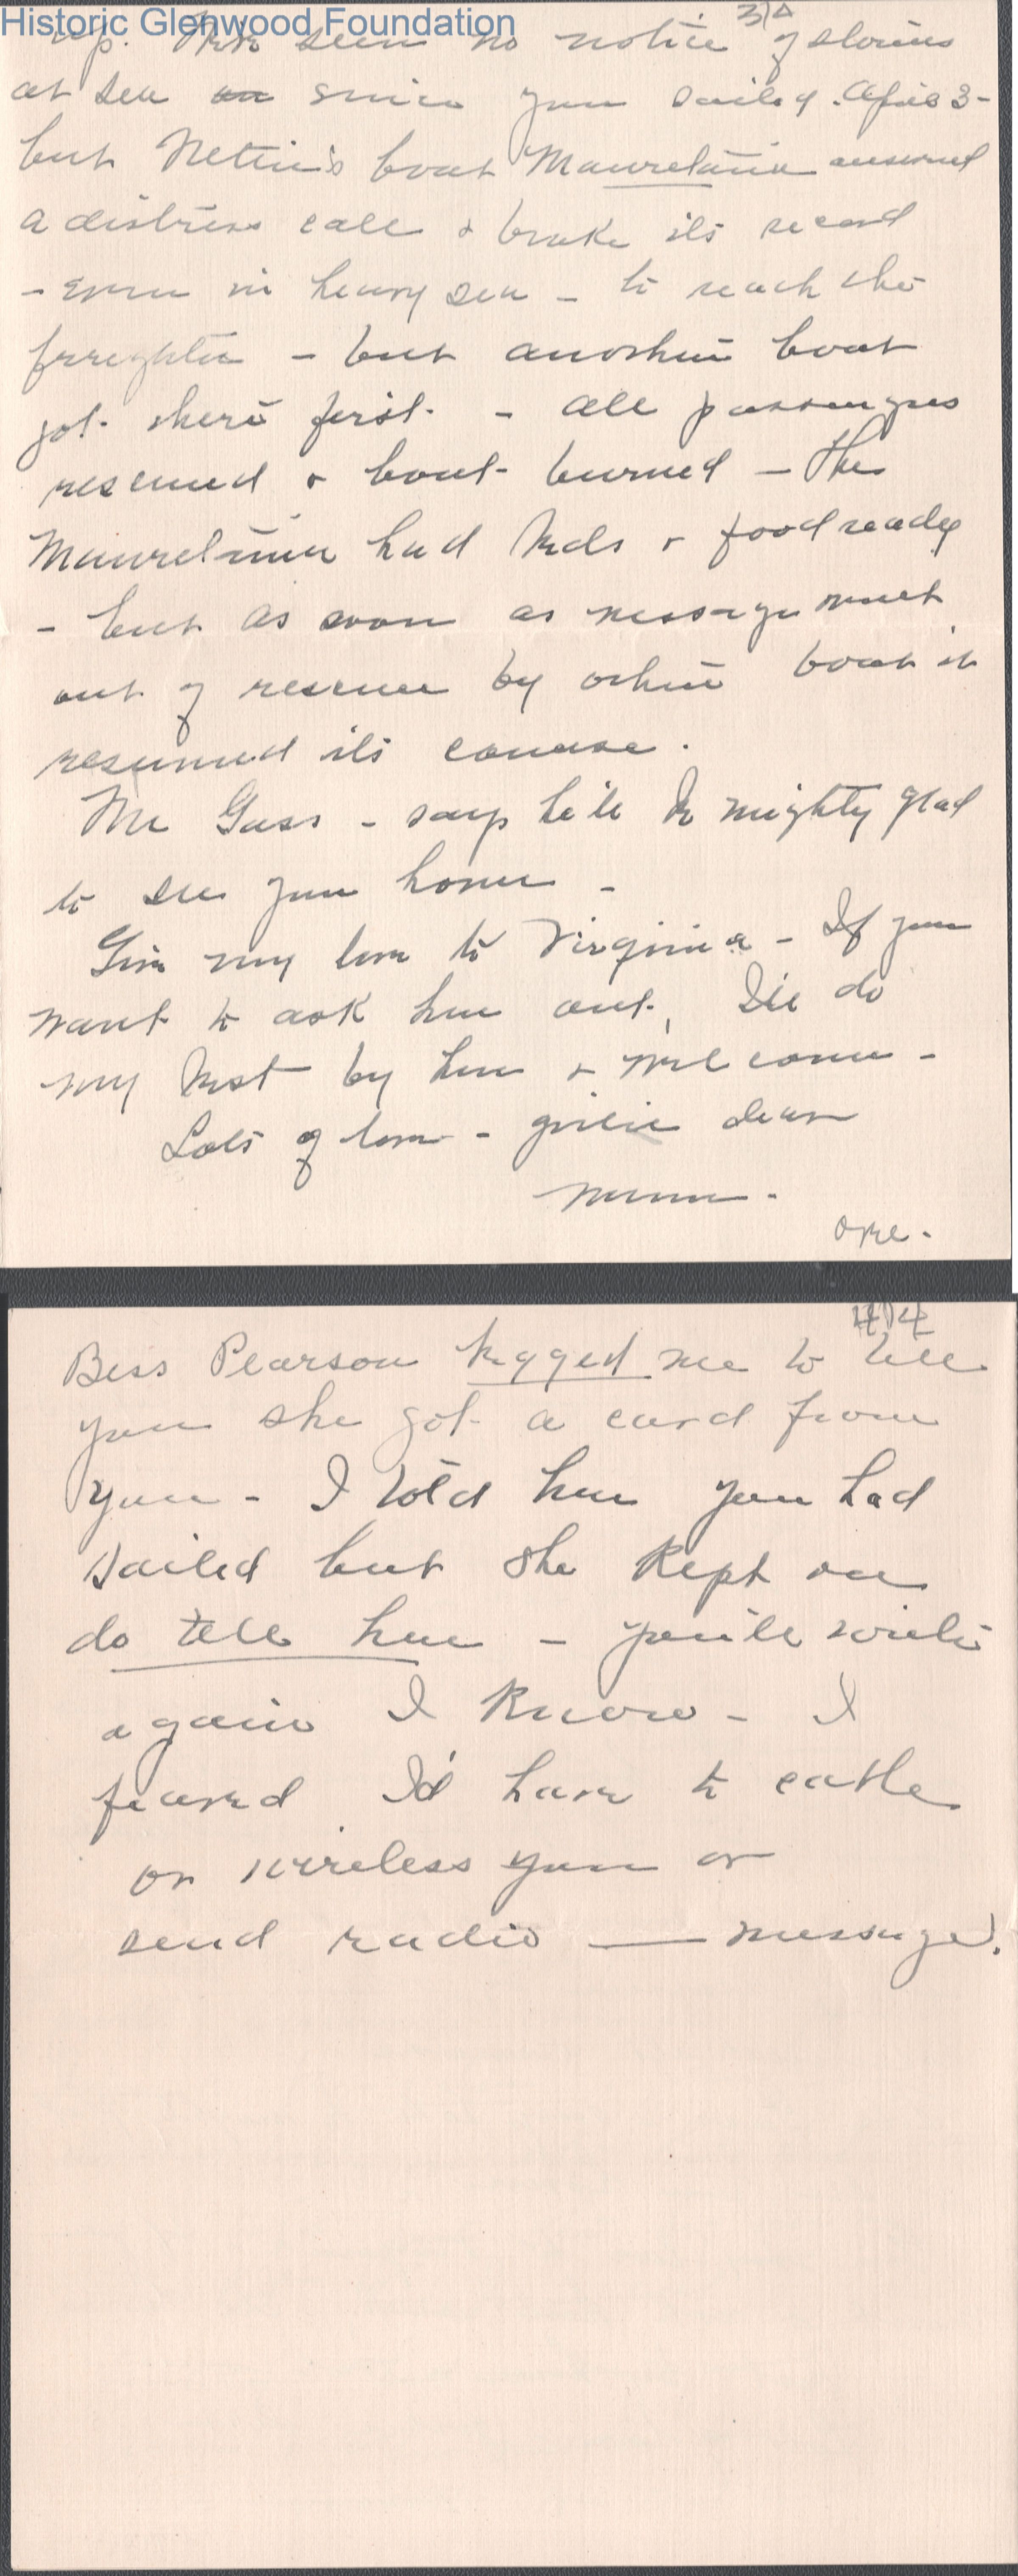 Historic Glenwood Foundation
3/4
up. Have seen no notice of storms
at sea on since you sailed. Apr 3 -
but Nettie's boat Mauretania answered
a distress call & broke its record
- even in heavy sea - to reach the
freighter - but another boat
got there first. - all passengers
rescued & boat burned - The
Mauretania had beds & food ready
- but as soon as message went
out of rescue by other boat it
resumed its course.
Mr Gass - says he'll be mighty glad
to see you home -
Give my love to Virginia - If you
want to ask her out, I'll do
my best by her & welcome -
Lots of love - girlie dear
Mum -
over.
4/4
Bess Pearson begged me to tell
you she got a card from
you - I told her you had
sailed but she kept on
do tell her - you'll write
again I know - I
feared I'd have to cable
or wireless you or
send radio — message.